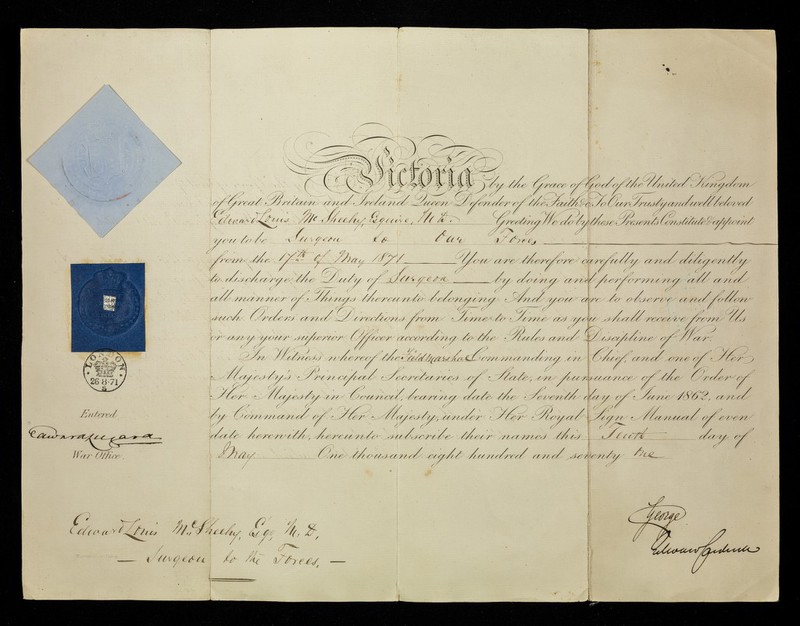 Victoria by the Grace of God of the United Kingdom
of Great Britain and Ireland Queen Defender of the Faith &c To Our Trusty and well beloved
Edward Louis McSheehy, Esquire, M.D. Greeting We do by these Presents Constitute & appoint
you to be Surgeon to Our Forces
from the 17th of May 1871 You are therefore carefully and diligently
to discharge the Duty of Surgeon by doing and performing all and
all manner of Things thereunto belonging And you are to observe and follow
such Orders and Directions from Time to Time as you shall receive from Us
or any your superior Officer according to the Rules and Discipline of War.
In Witness whereof the Field Marshal Commanding in Chief, and one of Her
Majesty's Principal Secretaries of State, in pursuance of the Order of
Her Majesty in Council, bearing date the Seventh day of June 1862, and
by Command of Her Majesty, under Her Royal Sign Manual of even
date herewith, hereunto subscribe their names this day of
May One thousand eight hundred and seventy one
LONDON
26·8·71
5
Entered
War Office
Edward Louis McSheehy, Esq, M.D,
— Surgeon to the Forces, —
George
Edward Cardwell